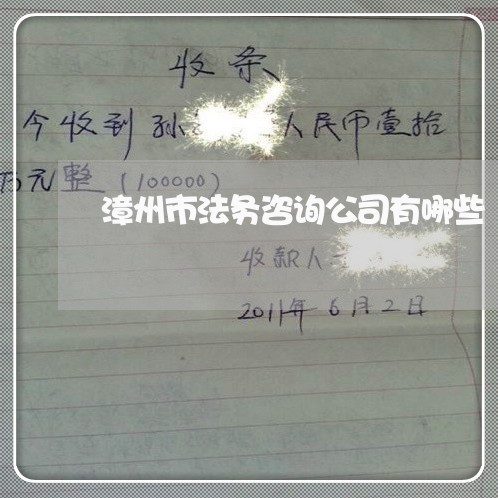 收条
今收到孙 人民币壹拾
万元整（100000）
漳州市法务咨询公司有哪些
收款人
2011年6月2日